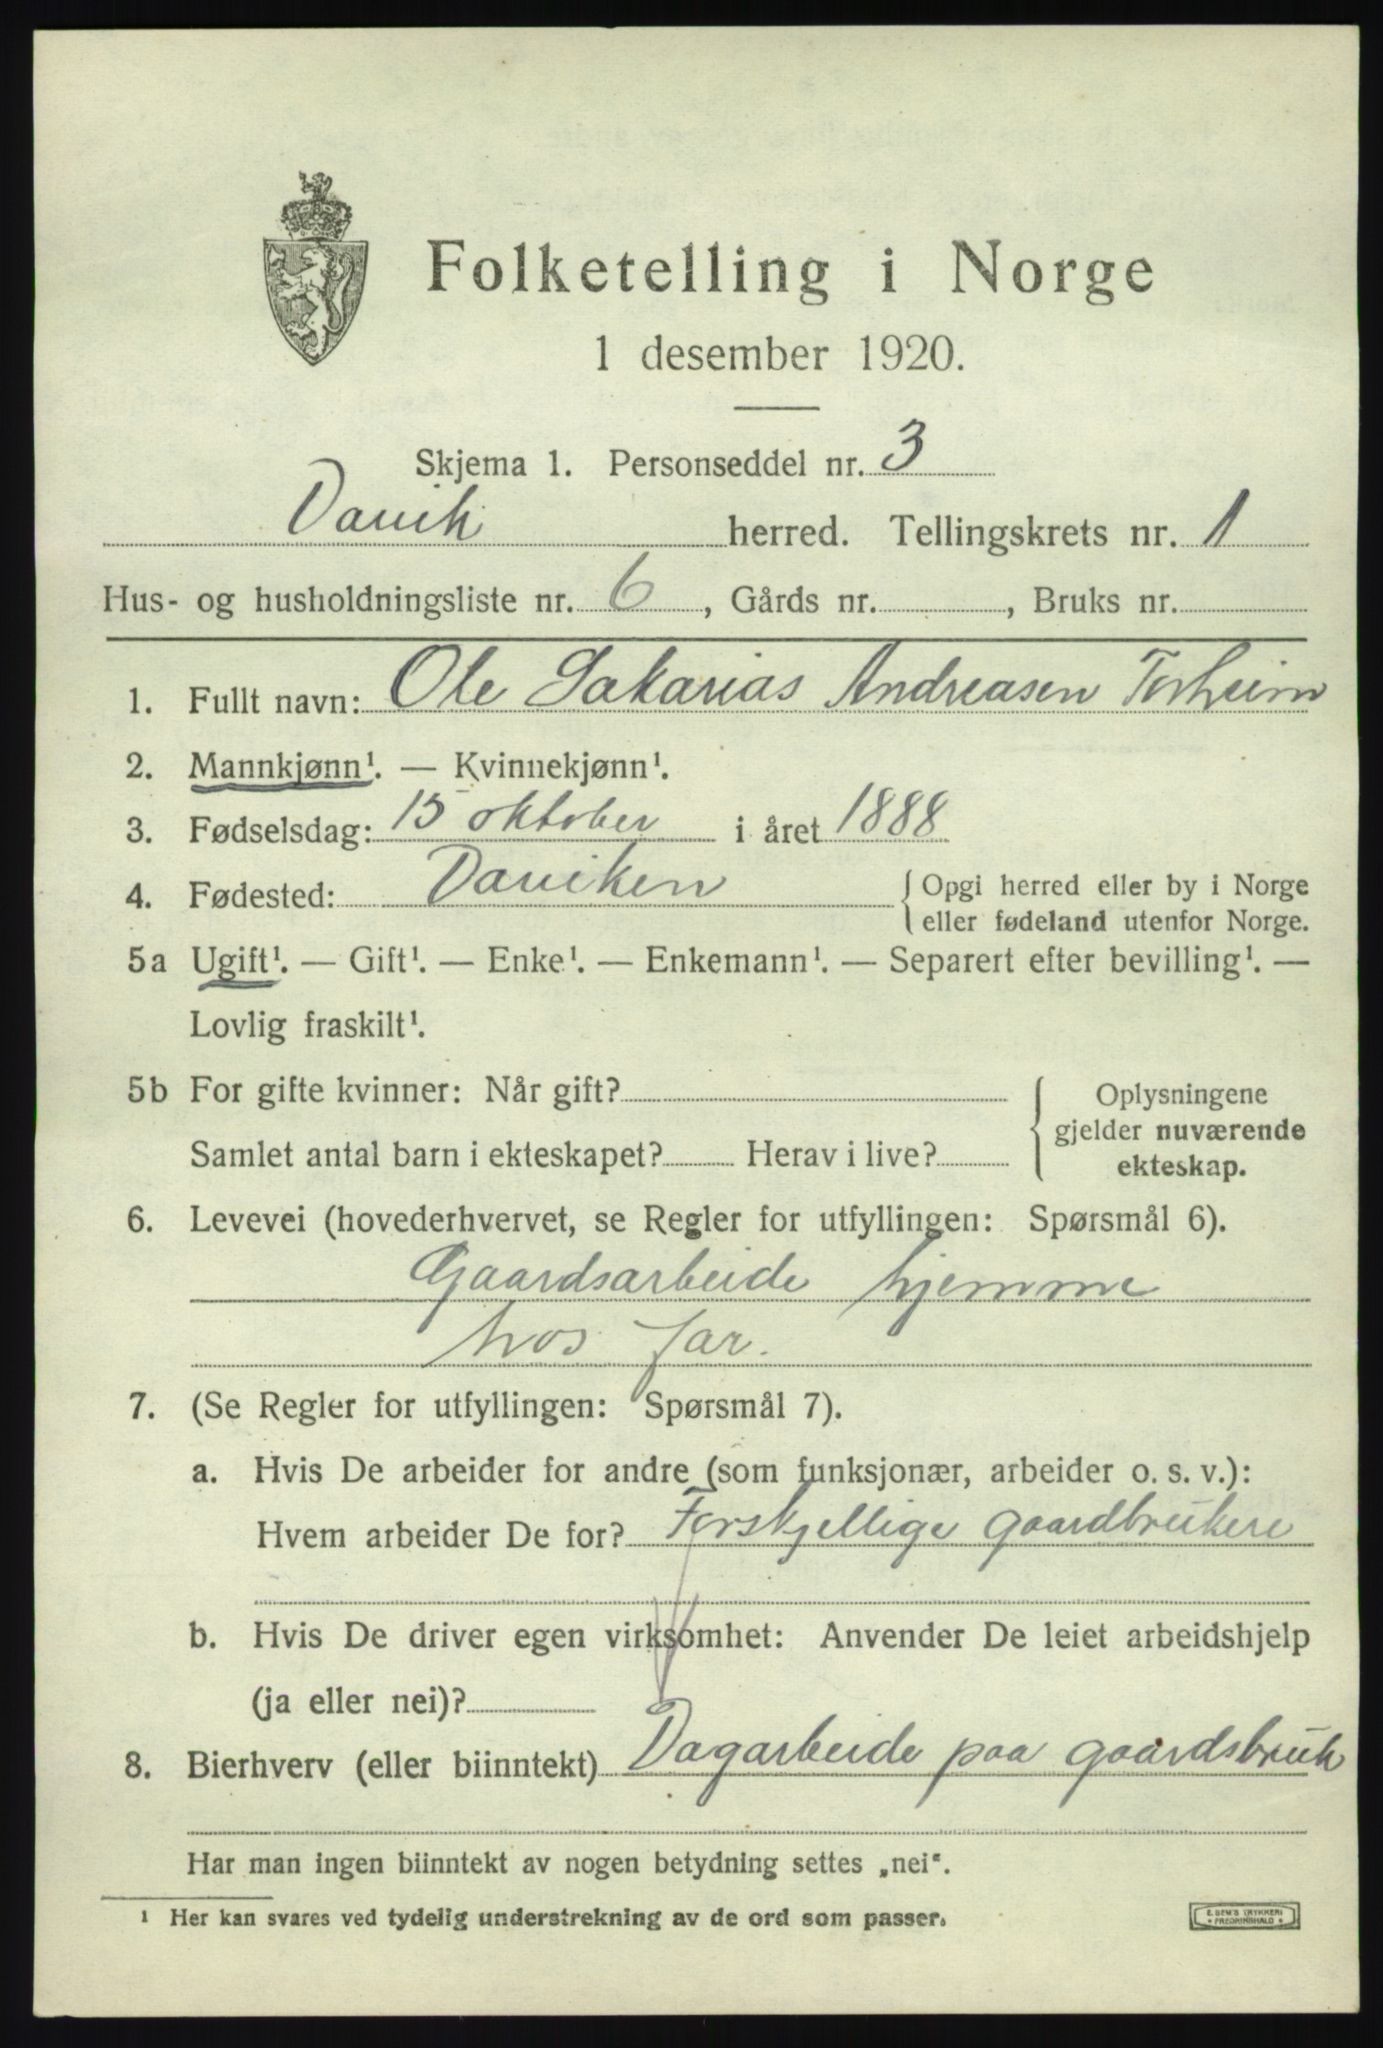 Folketelling i Norge
1 desember 1920.
Skjema 1. Personseddel nr. 3
Davik herred. Tellingskrets nr. 1
Hus- og husholdningsliste nr. 6, Gårds nr. , Bruks nr.
1. Fullt navn: Ole Sakarias Andreasen Torheim
2. Mannkjønn¹. — Kvinnekjønn¹.
3. Fødselsdag: 15 oktober i året 1888
4. Fødested: Daviken { Opgi herred eller by i Norge
eller fødeland utenfor Norge.
5a Ugift¹. — Gift¹. — Enke¹. — Enkemann¹. — Separert efter bevilling¹. —
Lovlig fraskilt¹.
5b For gifte kvinner: Når gift? { Oplysningene
gjelder nuværende
Samlet antal barn i ekteskapet? Herav i live?
ekteskap.
6. Levevei (hovederhvervet, se Regler for utfyllingen: Spørsmål 6).
Gaardsarbeide hjemme
hos far.
7. (Se Regler for utfyllingen: Spørsmål 7).
a. Hvis De arbeider for andre (som funksjonær, arbeider o. s. v.):
Hvem arbeider De for? Forskjellige gaardbrukere
b. Hvis De driver egen virksomhet: Anvender De leiet arbeidshjelp
(ja eller nei)?
8. Bierhverv (eller biinntekt) Dagarbeide paa gaardsbruk
Har man ingen biinntekt av nogen betydning settes „nei“.
¹ Her kan svares ved tydelig understrekning av de ord som passer.
E. SEM'S TRYKKERI
* FREDRIKSHALD *